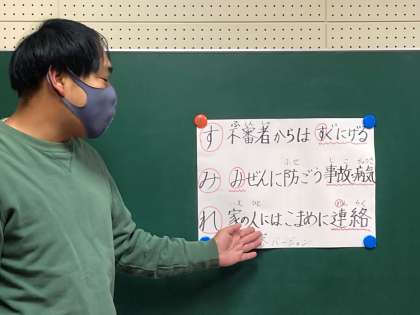 す 不審者からは すぐにげる
み みぜんに防ごう 事故・病気
れ 家の人には こまめに連絡
バージョン